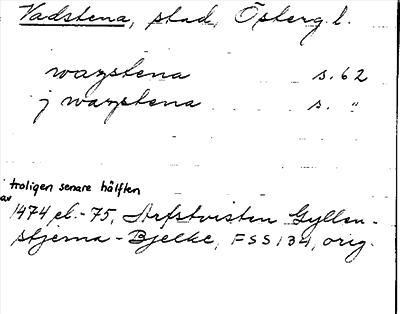 Vadstena, stad, Österg. l.
wazstena s. 62
j wazstena s. "
troligen senare hälften
av
1474 el. -75, Arfstvisten Gyllen-
stjerna - Bjelke, FSS 134, orig.